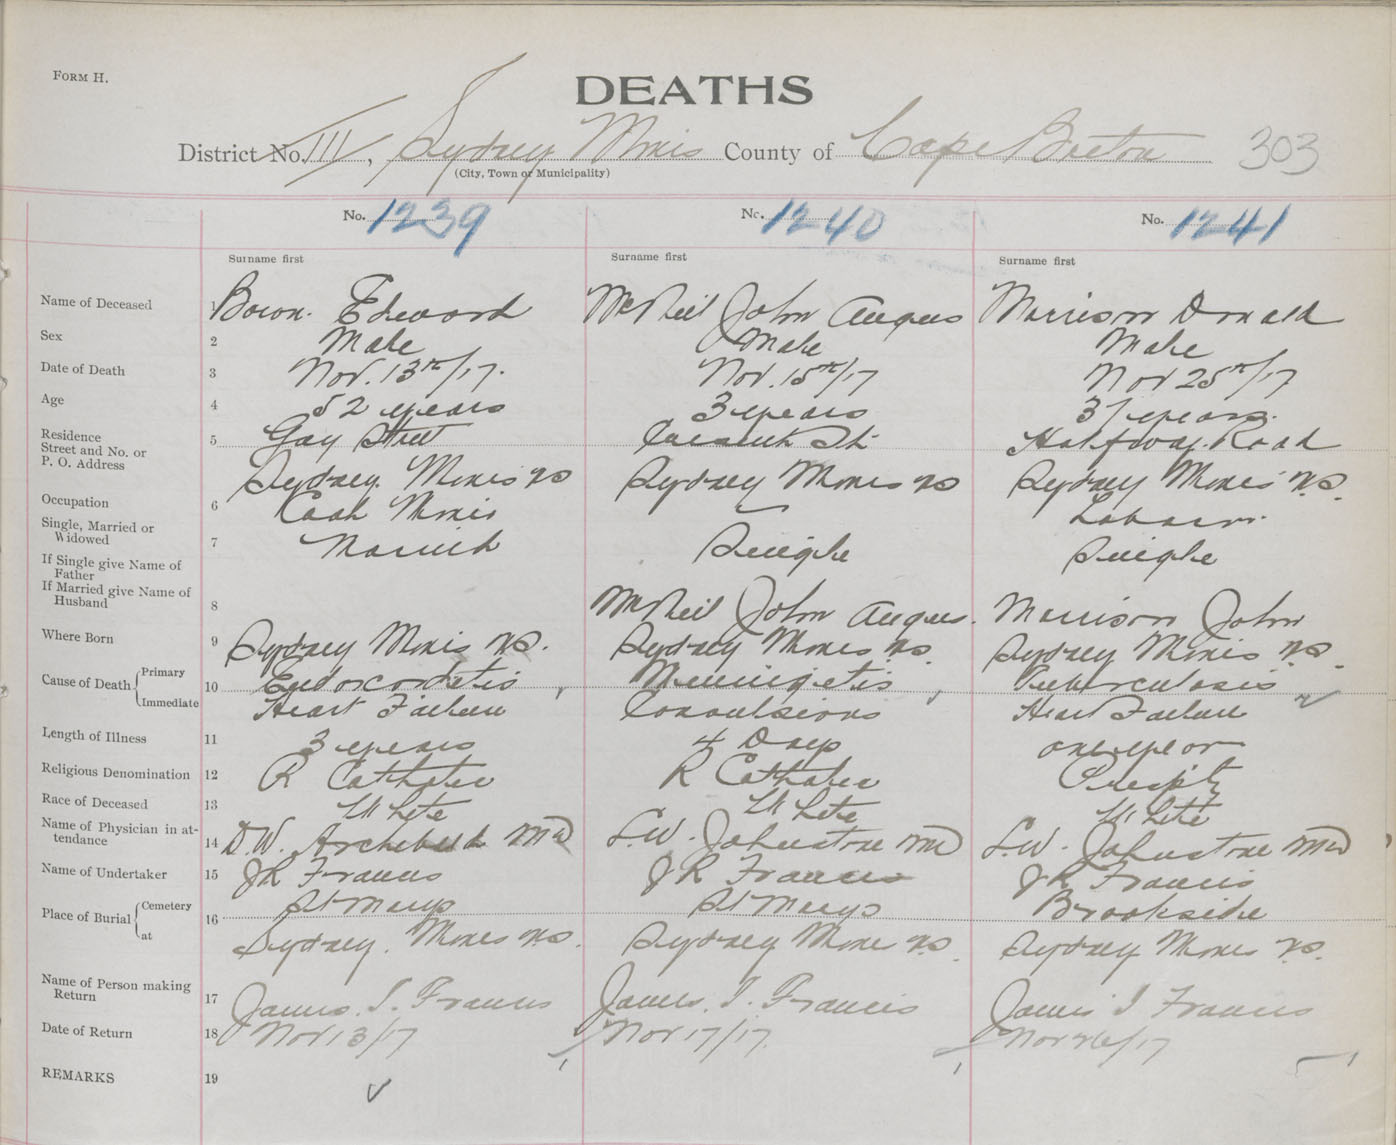 FORM H.
DEATHS
District No. III, Sydney Mines County of Cape Breton 303
(City, Town or Municipality)
No. 1239 No. 1240 No. 1241
Surname first Surname first Surname first
Name of Deceased 1 Edward McNeil John Angus Morrison Donald
Sex 2 Male Male Male
Date of Death 3 Nov. 13th/17. Nov. 15th/17 Nov 25th/17
Age 4 52 years 3 years 37 years.
Residence
Street and No. or
P. O. Address
5 Gay Street Crescent St. Halfway Road
Sydney Mines NS Sydney Mines NS Sydney Mines N.S.
Occupation 6 Coal Mines Laborer
Single, Married or
Widowed
7 Married Single Single
If Single give Name of
Father
If Married give Name of
Husband
8 McNeil John Angus. Morrison John
Where Born 9 Sydney Mines N.S. Sydney Mines N.S. Sydney Mines N.S.
Cause of Death { Primary 10 Endocorditis Meningetis Tuberculosis
Immediate Heart Failure Convulsions Heart Failure
Length of Illness 11 3 years 4 Days one year
Religious Denomination 12 R Catholic R Catholic
Race of Deceased 13 White White White
Name of Physician in at-
tendance
14 D.W. Archibald MD L.W. Johnstone MD L.W. Johnstone MD
Name of Undertaker 15 JR Francis JR Francis JR Francis
Place of Burial { Cemetery 16 St Marys St Marys Brookside
at Sydney. Mines N.S. Sydney Mines N.S. Sydney Mines N.S.
Name of Person making
Return
17 James. I. Francis James. I. Francis James I Francis
Date of Return 18 Nov 13/17 Nov 17/17. Nov 26/17
REMARKS 19